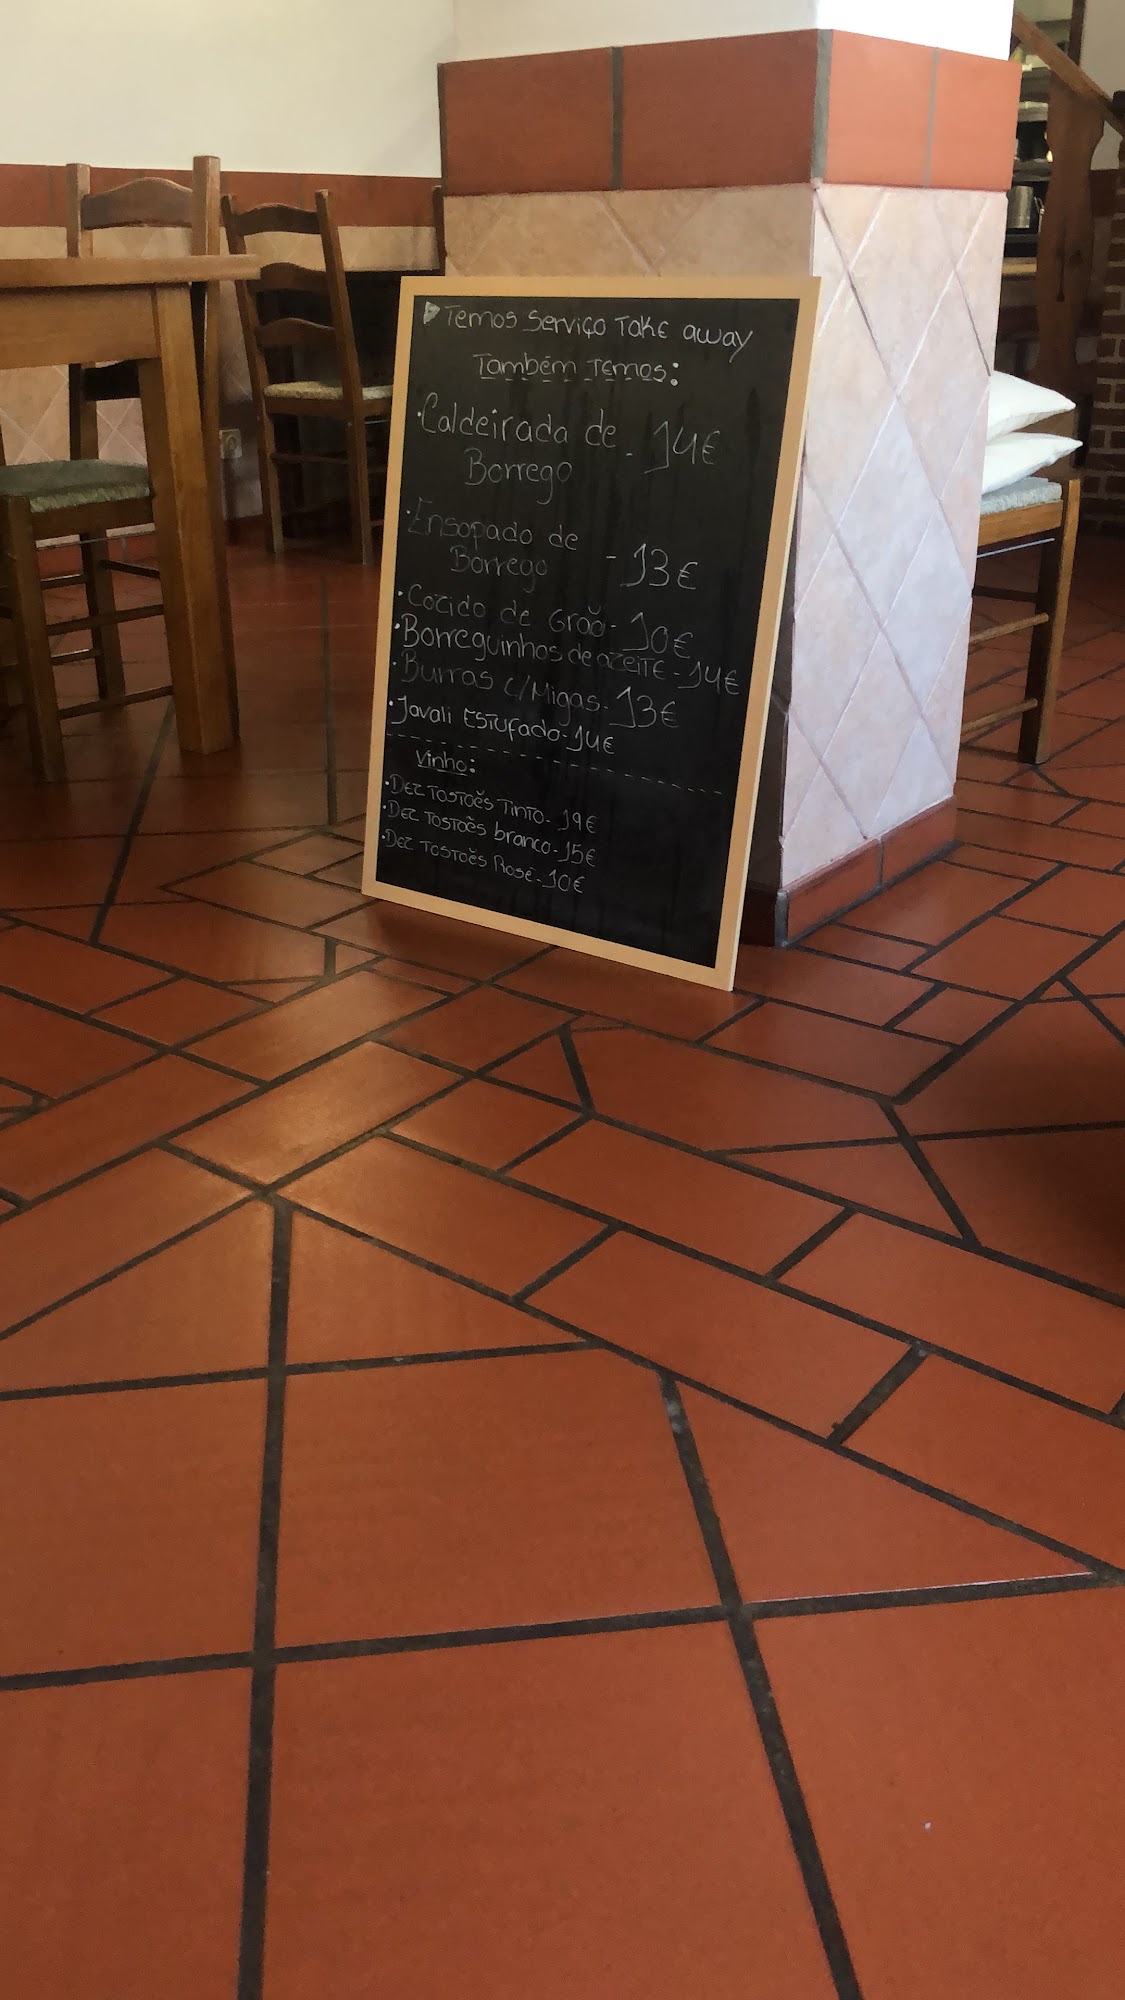 Temos Serviço Take away
Também Temos:
·Caldeirada de - 14€
Borrego
·Ensopado de
Borrego - 13€
·Cozido de Grão - 10€
·Borreguinhos de azeite - 14€
·Burras c/Migas - 13€
·Javali Estufado - 14€
Vinho:
·Dez Tostoẽs Tinto - 19€
·Dez Tostoẽs branco - 15€
·Dez Tostoẽs Rose - 10€